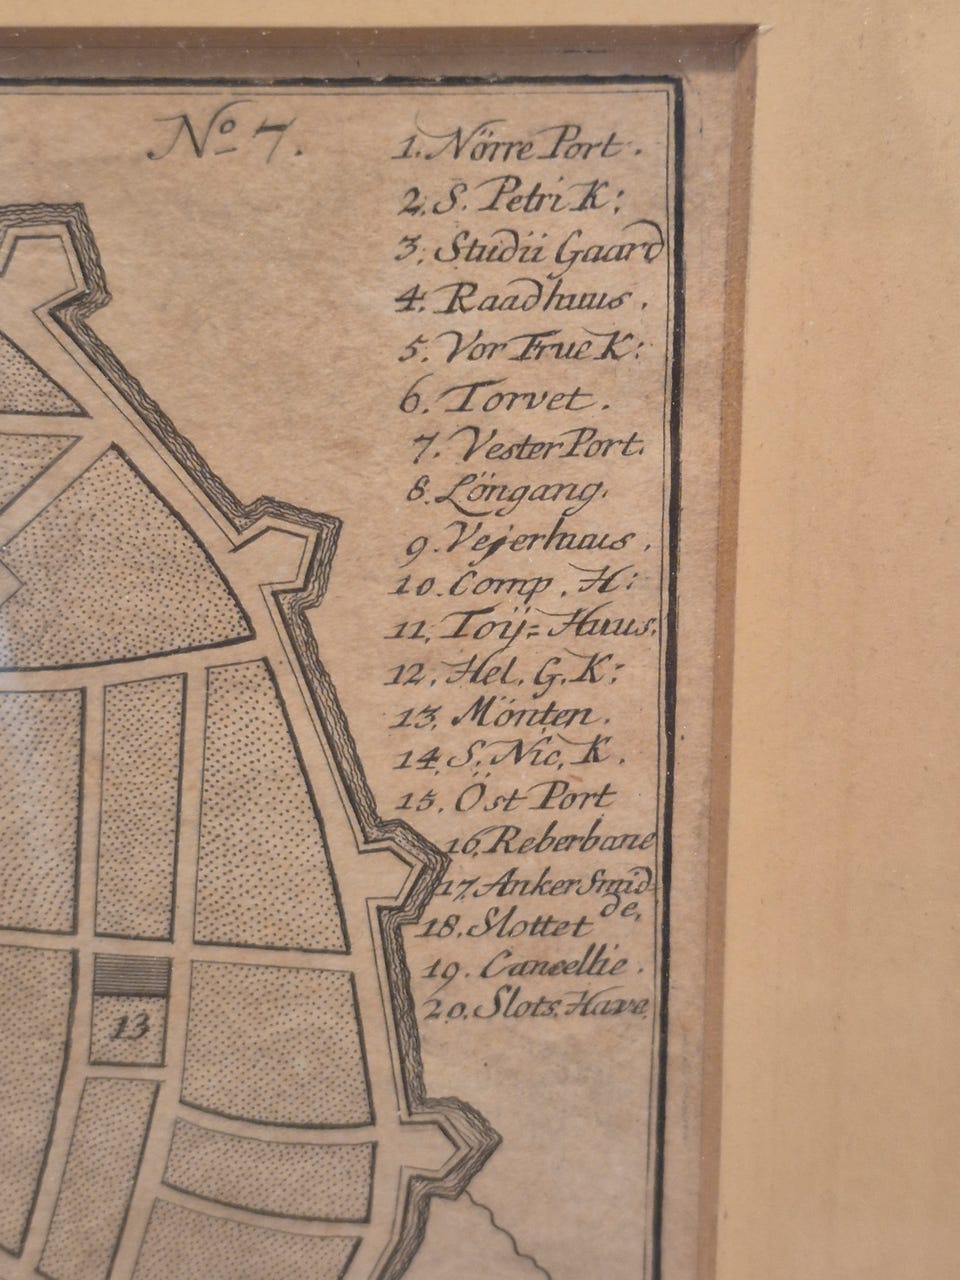 No 7.
1. Nörre Port.
2. S. Petri K:
3. Studii Gaard
4. Raadhuus.
5. Vor Frue K:
6. Torvet.
7. Vester Port.
8. Löngang.
9. Vejerhuus.
10. Comp. H:
11. Toÿ=Huus.
12. Hel. G. K:
13. Mönten.
14. S. Nic. K.
15. Öst Port
16. Reberbane
17. Anker Smid
de.
18. Slottet
19. Cancellie.
20. Slots. Have
13